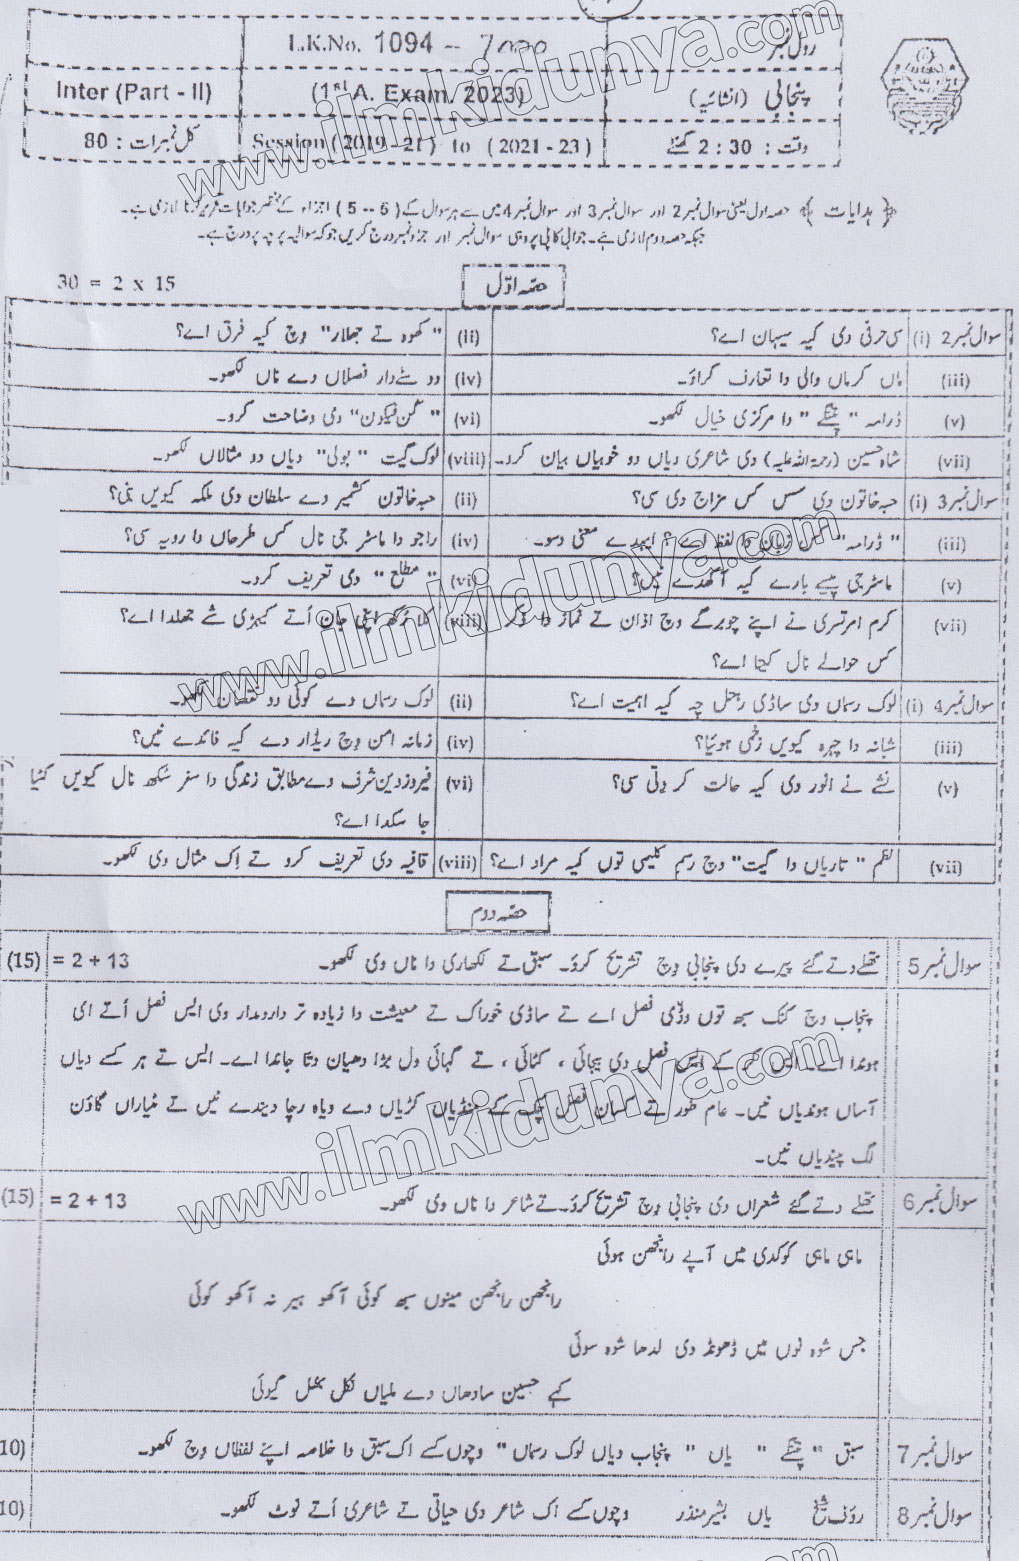 L.K.No. 1094 --
رول نمبر
Inter (Part - II)
(1st A. Exam. 2023)
پنجابی (انشائیہ)
کل نمبرات : 80
Session (2019 - 21) to (2021 - 23)
وقت : 2 : 30 گھنٹے
﴿ ہدایات ﴾ حصہ اول یعنی سوال نمبر 2 اور سوال نمبر 3 اور سوال نمبر 4 میں سے ہر سوال کے ( 6 -- 5 ) اجزاء کے مختصر جوابات تحریر کرنا لازمی ہے۔
جبکہ حصہ دوم لازمی ہے۔ جوابی کاپی پر وہی سوال نمبر اور جزو نمبر درج کریں جو کہ سوالیہ پرچہ پر درج ہے۔
حصہ اوّل
30 = 2 x 15
سوال نمبر 2 (i) سی حرفی دی کیہ سیہان اے؟
(ii) "کھوہ تے جھلار" وچ کیہ فرق اے؟
(iii) ماں کرماں والی دا تعارف کراؤ۔
(iv) دو سٹے دار فصلاں دے ناں لکھو۔
(v) ڈرامہ " " دا مرکزی خیال لکھو۔
(vi) " کُن فیکون" دی وضاحت کرو۔
(vii) شاہ حسین (رحمۃ اللہ علیہ) دی شاعری دیاں دو خوبیاں بیان کرو۔
(viii) لوک گیت " بولی" دیاں دو مثالاں لکھو۔
سوال نمبر 3 (i) حبہ خاتون دی سس کس مزاج دی سی؟
(ii) حبہ خاتون کشمیر دے سلطان دی ملکہ کیویں بنی؟
(iii) " ڈرامہ" کس زبان دا لفظ اے؟ ایہدے معنی دسو۔
(iv) راجو دا ماسٹر جی نال کس طرحاں دا رویہ سی؟
(v) ماسٹر جی پیسے بارے کیہ آکھدے نیں؟
(vi) " مطلع " دی تعریف کرو۔
(vii) کرم امرتسری نے اپنے چوبرگے وچ اذان تے نماز دا ذکر
کس حوالے نال کیتا اے؟
(viii) کلا رُکھ اپنی جان اُتے کیہڑی شے جھلدا اے؟
سوال نمبر 4 (i) لوک رسماں دی ساڈی رہتل چہ کیہ اہمیت اے؟
(ii) لوک رسماں دے کوئی دو نقصان لکھو۔
(iii) شبانہ دا چہرہ کیویں زخمی ہوئیا؟
(iv) زمانہ امن وچ ریڈار دے کیہ فائدے نیں؟
(v) نشے نے انور دی کیہ حالت کر دِتی سی؟
(vi) فیروزدین شرف دے مطابق زندگی دا سفر سُکھ نال کیویں کٹیا
جا سکدا اے؟
(vii) نظم " تاریاں دا گیت" وچ رسم کلیسی توں کیہ مراد اے؟
(viii) قافیہ دی تعریف کرو تے اِک مثال وی لکھو۔
حصہ دوم
سوال نمبر 5 تھلے دتے گئے پیرے دی پنجابی وچ تشریح کرو۔ سبق تے لکھاری دا ناں وی لکھو۔ (15) = 2 + 13
پنجاب وچ کنک سبھ توں وڈی فصل اے تے ساڈی خوراک تے معیشت دا زیادہ تر دارومدار وی ایس فصل اُتے ای
ہوندا اے۔ ایس کر کے ایس فصل دی بیجائی ، کٹائی ، تے گہائی ول بڑا دھیان دِتا جاندا اے۔ ایس تے ہر کسے دیاں
آساں ہوندیاں نیں۔ عام طور تے کسان فصل چُک کے منڈیاں کڑیاں دے ویاہ رچا دیندے نیں تے مُٹیاراں گاؤن
لگ پیندیاں نیں۔
سوال نمبر 6 تھلے دتے گئے شعراں دی پنجابی وچ تشریح کرو۔ تے شاعر دا ناں وی لکھو۔ (15) = 2 + 13
ماہی ماہی کوکدی میں آپے رانجھن ہوئی
رانجھن رانجھن مینوں سبھ کوئی آکھو ہیر نہ آکھو کوئی
جس شوہ نوں میں ڈھونڈ دی لدھا شوہ سوئی
کہے حسین سادھاں دے ملیاں نکل بُھل گیوئی
سوال نمبر 7 سبق " " یاں " پنجاب دیاں لوک رسماں " وچوں کسے اک سبق دا خلاصہ اپنے لفظاں وچ لکھو۔ 10)
سوال نمبر 8 رؤف شیخ یاں بشیر منذر وچوں کسے اک شاعر دی حیاتی تے شاعری اُتے نوٹ لکھو۔ 10)
www.ilmkidunya.com
www.ilmkidunya.com
www.ilmkidunya.com